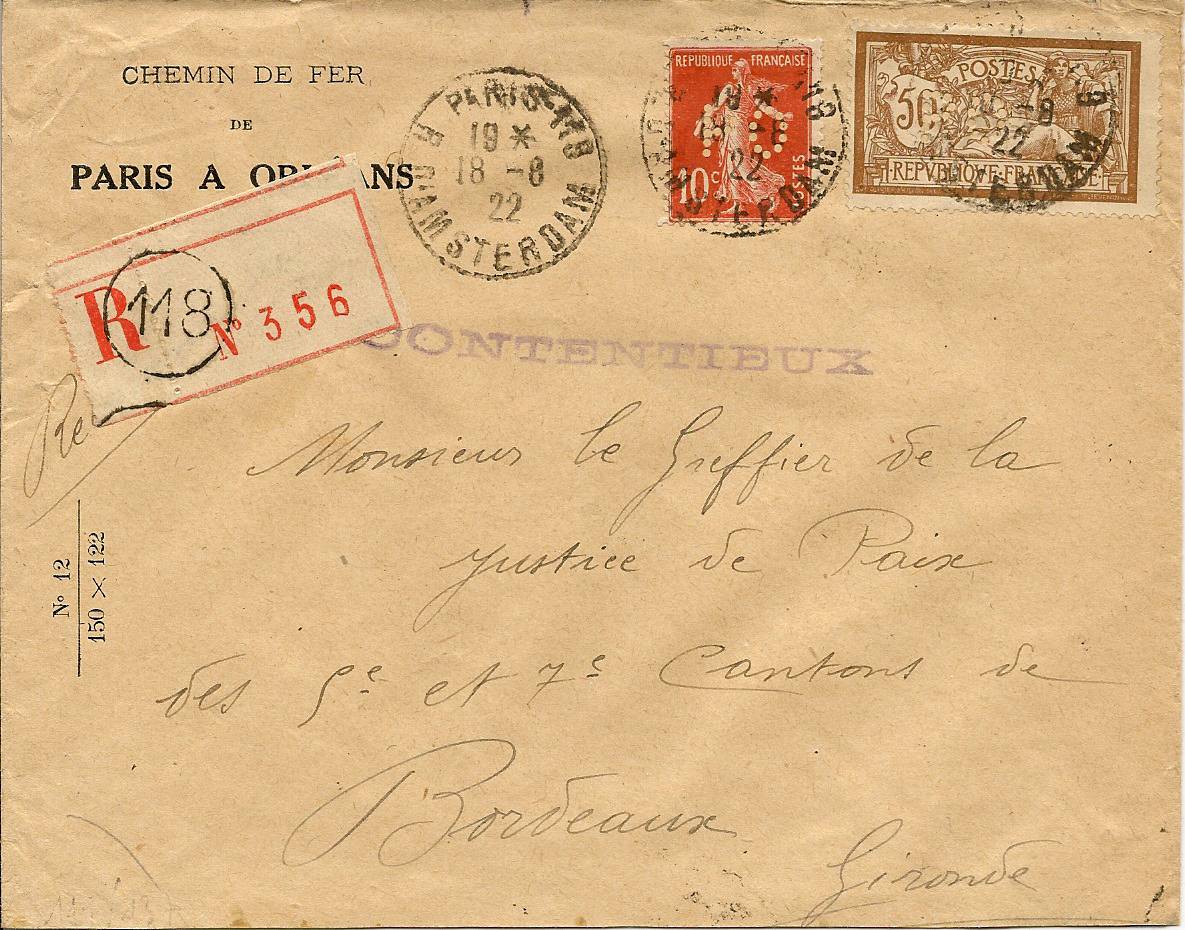 CHEMIN DE FER
DE
PARIS A ORLEANS
PARIS-118
19 *
18 -8
22
R. D'AMSTERDAM
REPUBLIQUE FRANÇAISE
19 *
18 -8
22
10 c
POSTES
118
AMSTERDAM
PO
POSTES
50
-8
22
REPVBLIQVE FRANÇAISE
STERDAM
R 118 No 356
CONTENTIEUX
Re
Monsieur le Greffier de la
Justice de Paix
des 5e et 7e Cantons de
Bordeaux
Gironde
No 12
150 × 122